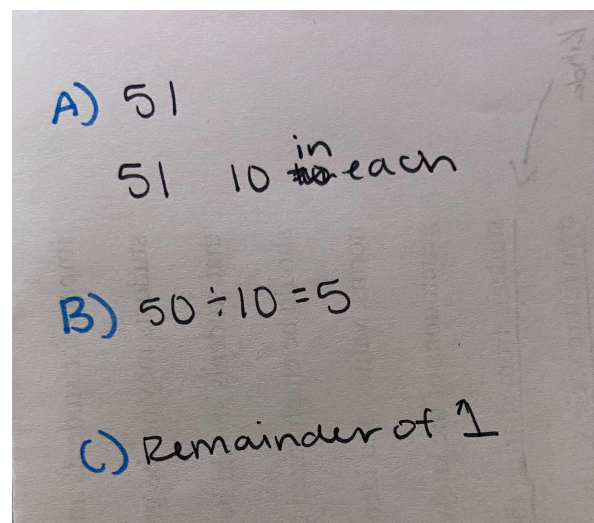 A) 51
in
51 10 each
B) 50÷10=5
C) Remainder of 1